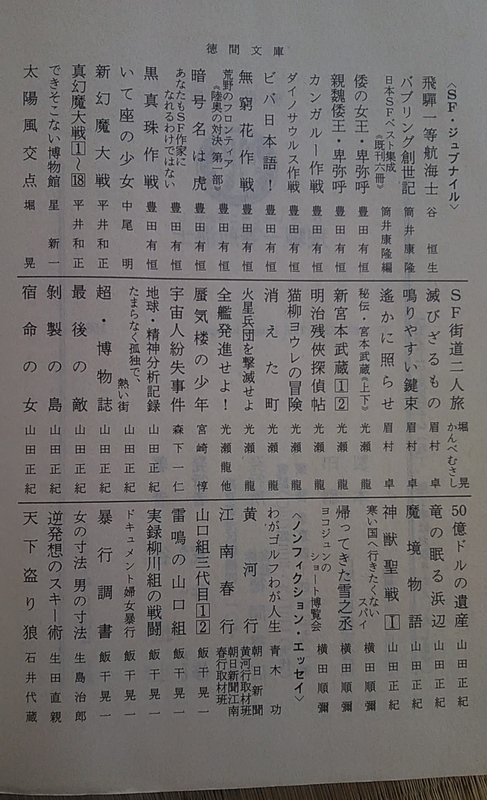 徳間文庫
〈SF・ジュブナイル〉
飛騨一等航海士 谷恒生
バブリング創世記 筒井康隆
日本SFベスト集成《既刊六冊》 筒井康隆編
倭の女王・卑弥呼 豊田有恒
親魏倭王・卑弥呼 豊田有恒
カンガルー作戦 豊田有恒
ダイノサウルス作戦 豊田有恒
ビバ日本語! 豊田有恒
無窮花作戦 豊田有恒
荒野のフロンティア《陸奥の対決 第一部》 豊田有恒
暗号名は虎 豊田有恒
あなたもSF作家になれるわけではない 豊田有恒
黒真珠作戦 豊田有恒
いて座の少女 中尾明
新幻魔大戦 平井和正
真幻魔大戦1〜18 平井和正
できそこない博物館 星新一
太陽風交点 堀晃
SF街道二人旅 堀晃 かんべむさし
滅びざるもの 眉村卓
鳴りやすい鍵束 眉村卓
遙かに照らせ 眉村卓
秘伝・宮本武蔵《上下》 光瀬龍
新宮本武蔵12 光瀬龍
明治残俠探偵帖 光瀬龍
猫柳ヨウレの冒険 光瀬龍
消えた町 光瀬龍
火星兵団を撃滅せよ 光瀬龍
全艦発進せよ! 光瀬龍他
蜃気楼の少年 宮崎惇
宇宙人紛失事件 森下一仁
地球・精神分析記録 山田正紀
たまらなく孤独で、熱い街 山田正紀
超・博物誌 山田正紀
最後の敵 山田正紀
剝製の島 山田正紀
宿命の女 山田正紀
50億ドルの遺産 山田正紀
竜の眠る浜辺 山田正紀
魔境物語 山田正紀
神獣聖戦1 山田正紀
寒い国へ行きたくないスパイ 横田順彌
帰ってきた雪之丞 横田順彌
ヨコジュンのショート博覧会 横田順彌
〈ノンフィクション・エッセイ〉
わがゴルフわが人生 青木功
黄河行 朝日新聞黄河行取材班
江南春行 朝日新聞江南春行取材班
山口組三代目12 飯干晃一
雷鳴の山口組 飯干晃一
実録柳川組の戦闘 飯干晃一
ドキュメント婦女暴行 飯干晃一
暴行調書 飯干晃一
女の寸法 男の寸法 生島治郎
逆発想のスキー術 生田直親
天下盗り狼 石井代蔵